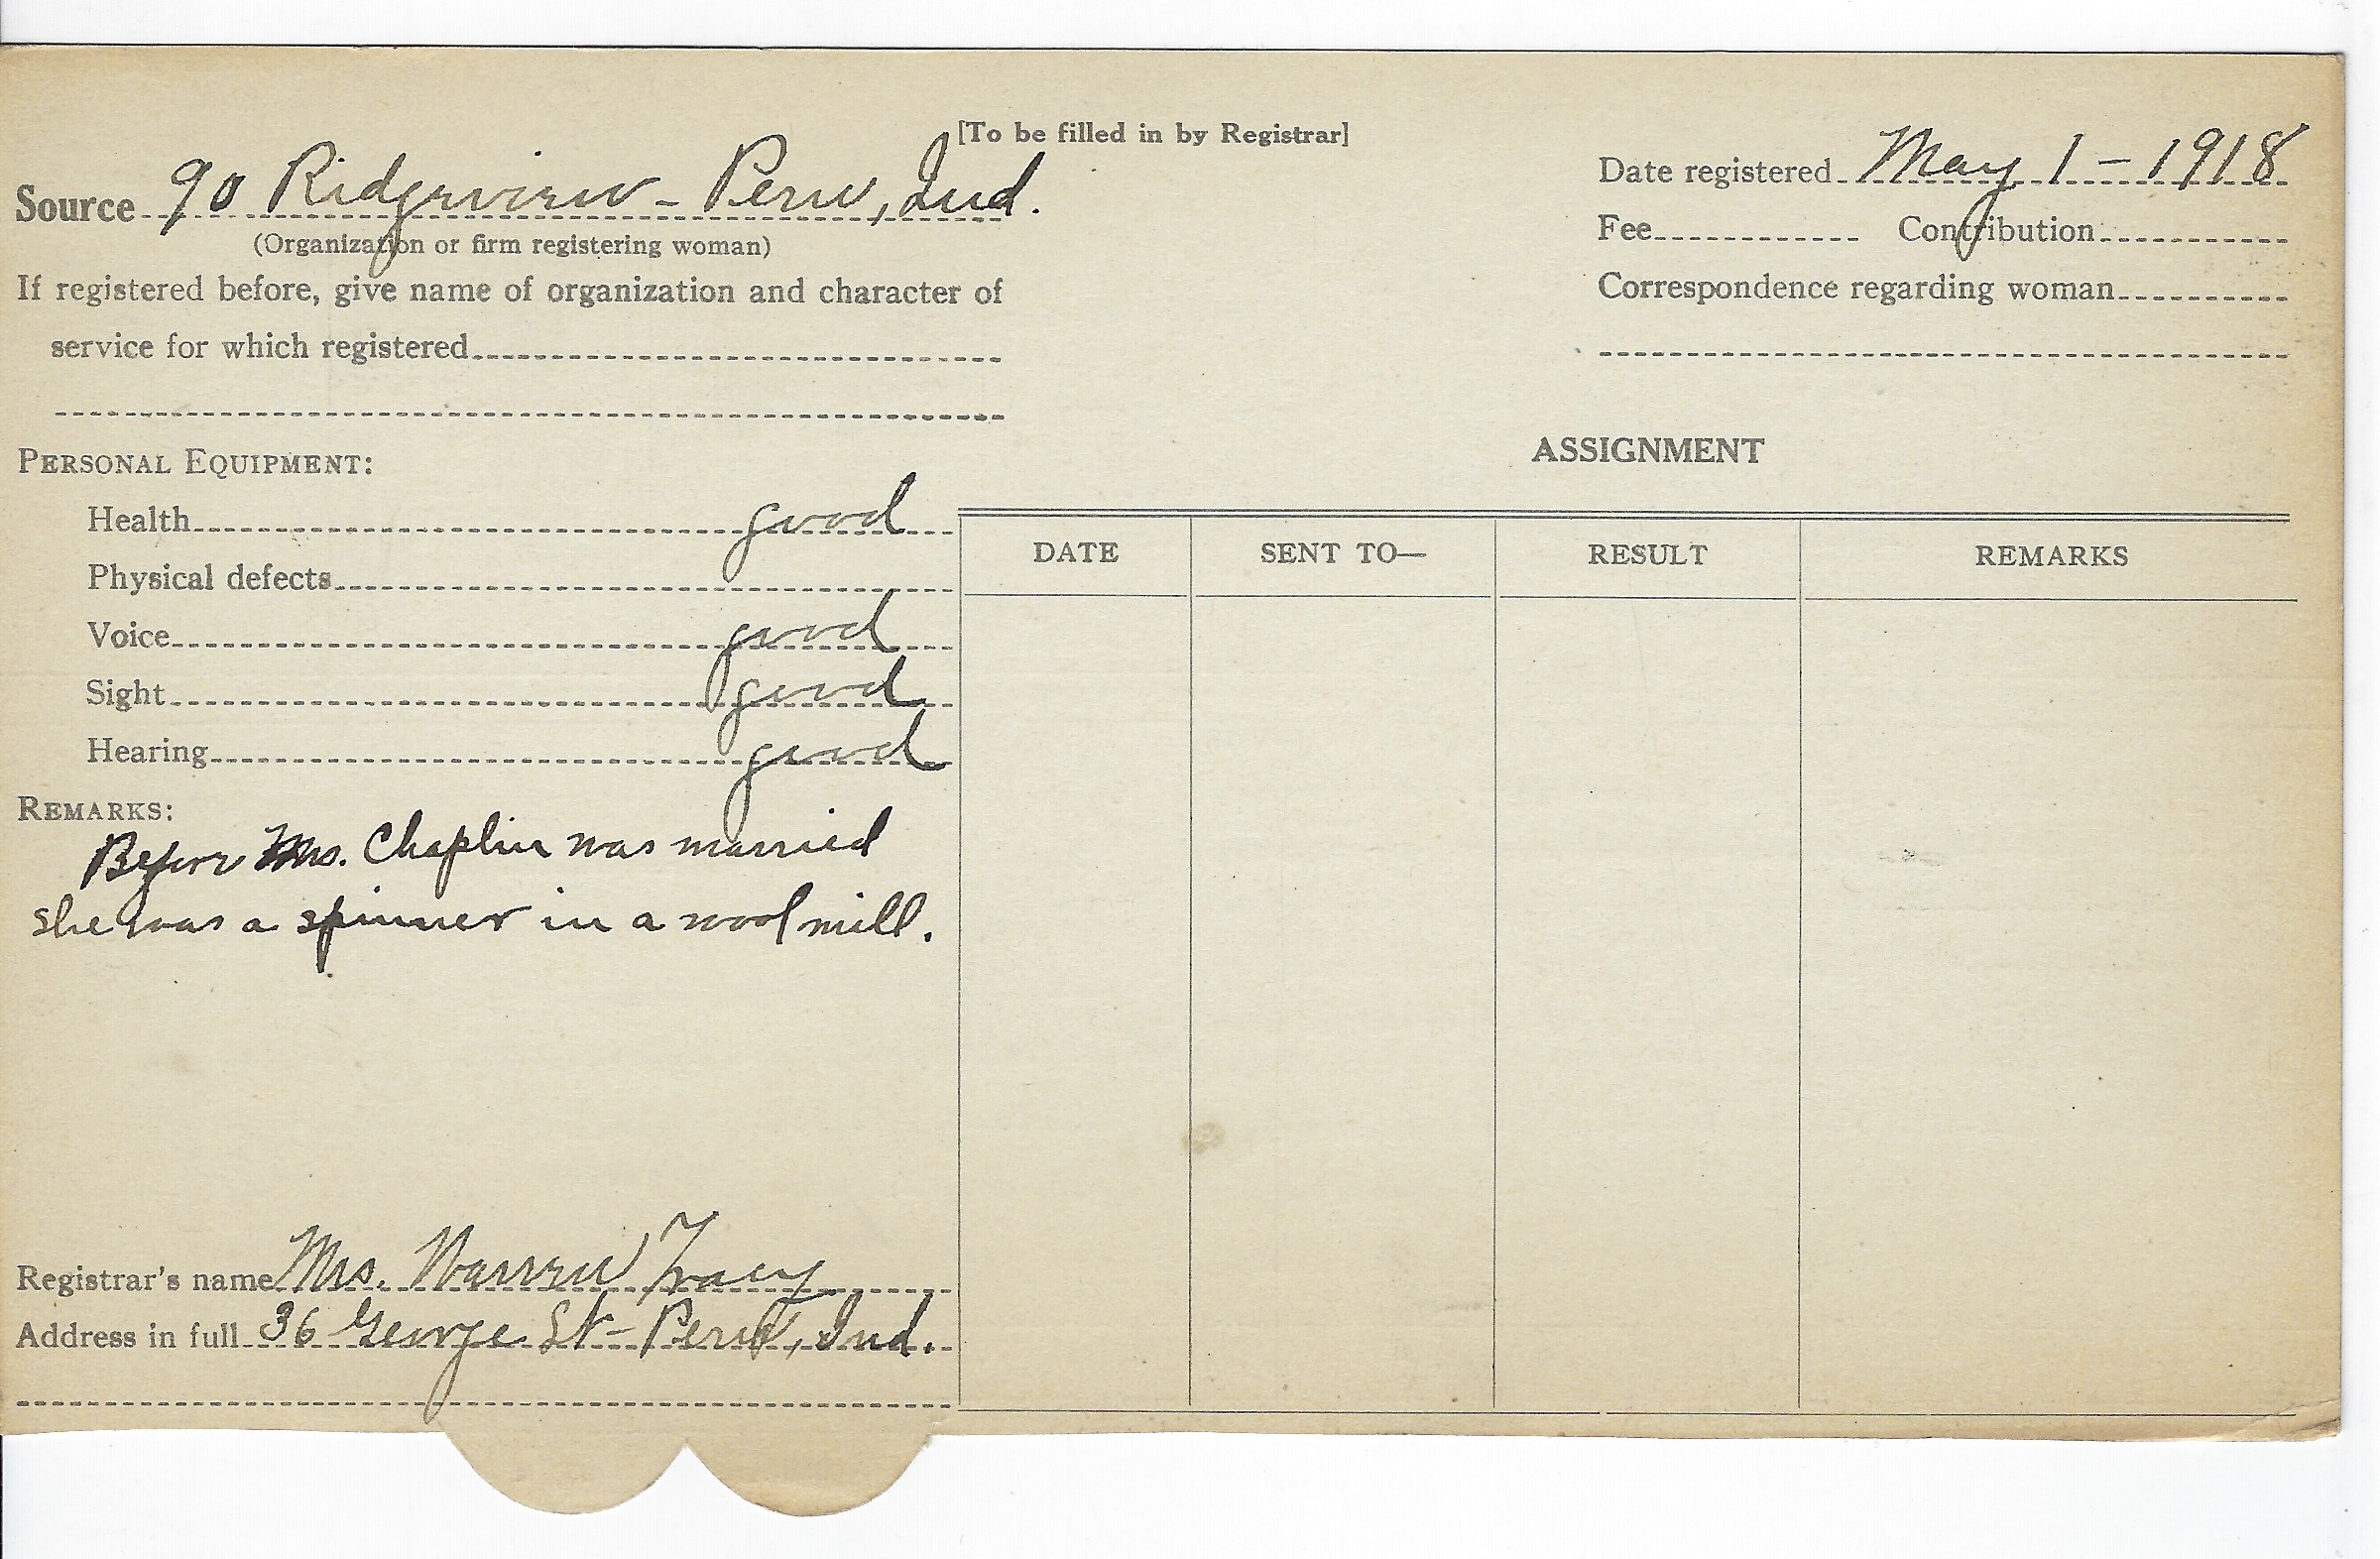 [To be filled in by Registrar]
Source 90 Ridgeview - Peru, Ind.
(Organization or firm registering woman)
If registered before, give name of organization and character of
service for which registered
Date registered May 1 - 1918
Fee Contribution
Correspondence regarding woman
PERSONAL EQUIPMENT:
Health good
Physical defects
Voice good
Sight good
Hearing good
REMARKS:
Before Mrs. Chaplin was married
she was a spinner in a wool mill.
Registrar's name Mrs. Warren Tracy
Address in full 36 George St - Peru, Ind.
ASSIGNMENT
DATE SENT TO— RESULT REMARKS